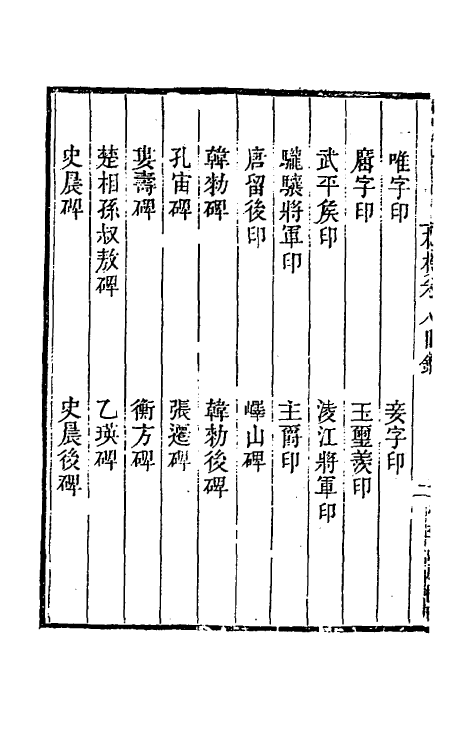 唯字印　妾字印
廥字印　玉璽羨印
武平矦印　淩江將軍印
驪驤將軍印　主爵印
唐留後印　嶧山碑
韓勑碑　韓勑後碑
孔宙碑　張遷碑
婁壽碑　衡方碑
楚相孫叔敖碑　乙瑛碑
史晨碑　史晨後碑